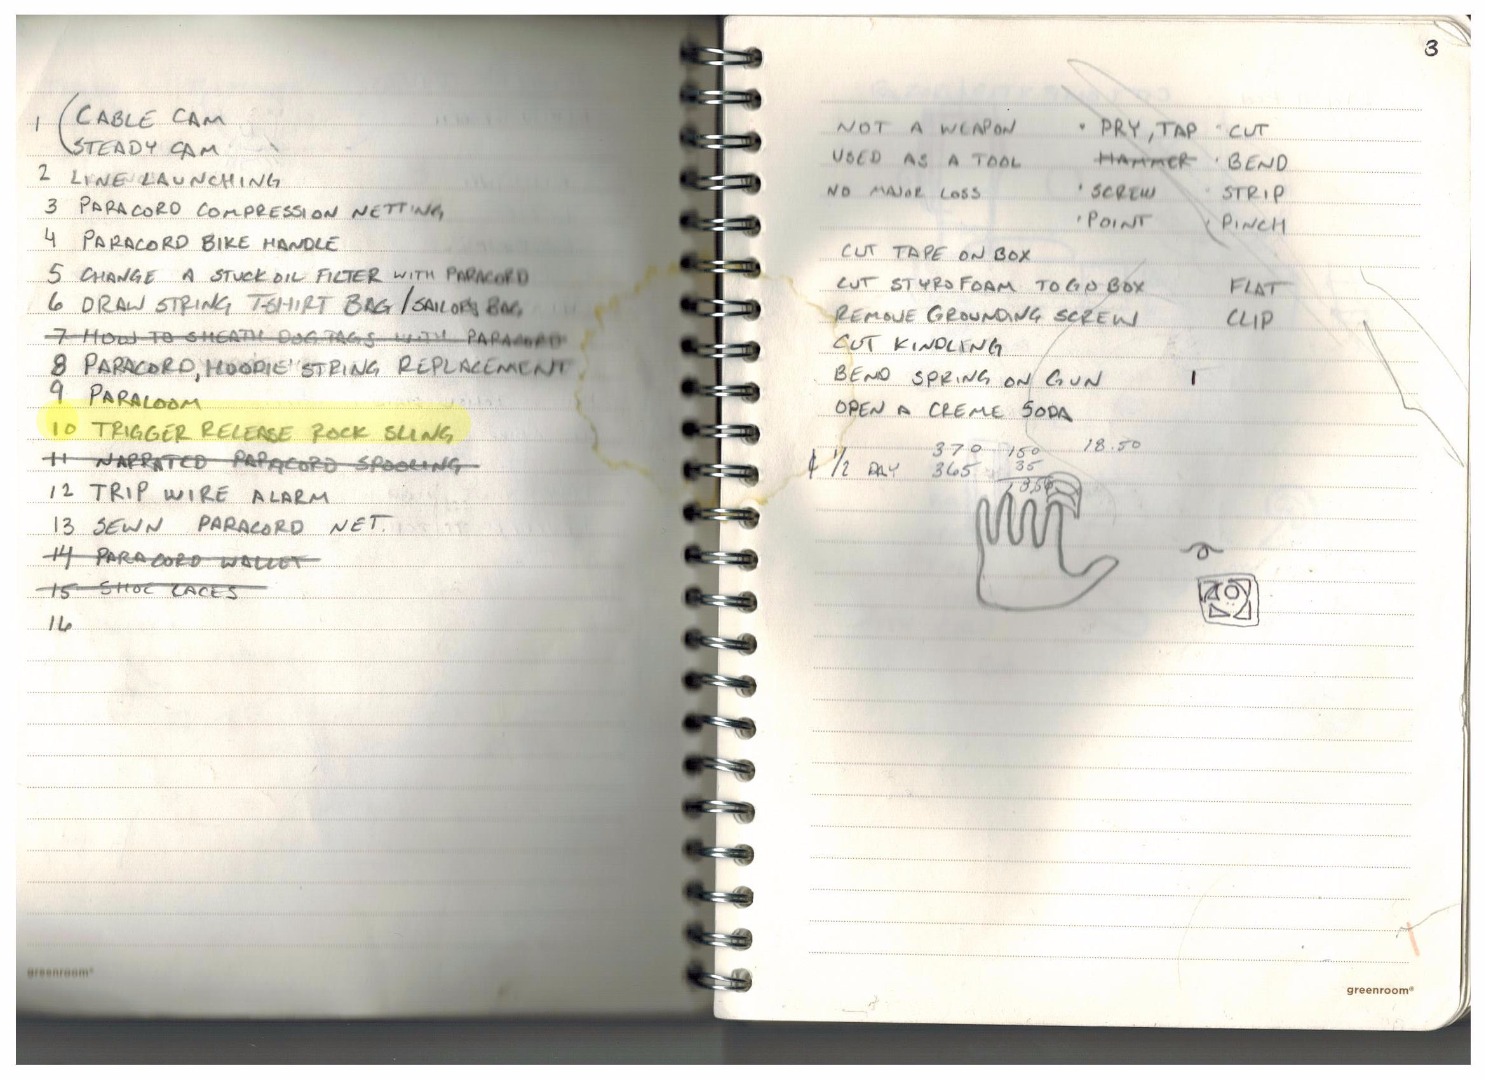 1 CABLE CAM
STEADY CAM
2 LINE LAUNCHING
3 PARACORD COMPRESSION NETTING
4 PARACORD BIKE HANDLE
5 CHANGE A STUCK OIL FILTER WITH PARACORD
6 DRAW STRING T-SHIRT BAG / SAILORS BAG
7 HOW TO SHEATH DOG TAGS WITH PARACORD
8 PARACORD, HOODIE STRING REPLACEMENT
9 PARALOOM
10 TRIGGER RELEASE ROCK SLING
11 NARRATED PARACORD SPOOLING
12 TRIP WIRE ALARM
13 SEWN PARACORD NET.
14 PARACORD WALLET
15 SHOE LACES
16
greenroom®
3
NOT A WEAPON · PRY, TAP · CUT
USED AS A TOOL HAMMER · BEND
NO MAJOR LOSS · SCREW · STRIP
· POINT · PINCH
CUT TAPE ON BOX
CUT STYROFOAM TO GO BOX FLAT
REMOVE GROUNDING SCREW CLIP
CUT KINDLING
BEND SPRING ON GUN 1
OPEN A CREME SODA
370 150 18.50
1/2 DAY 365 35
greenroom®